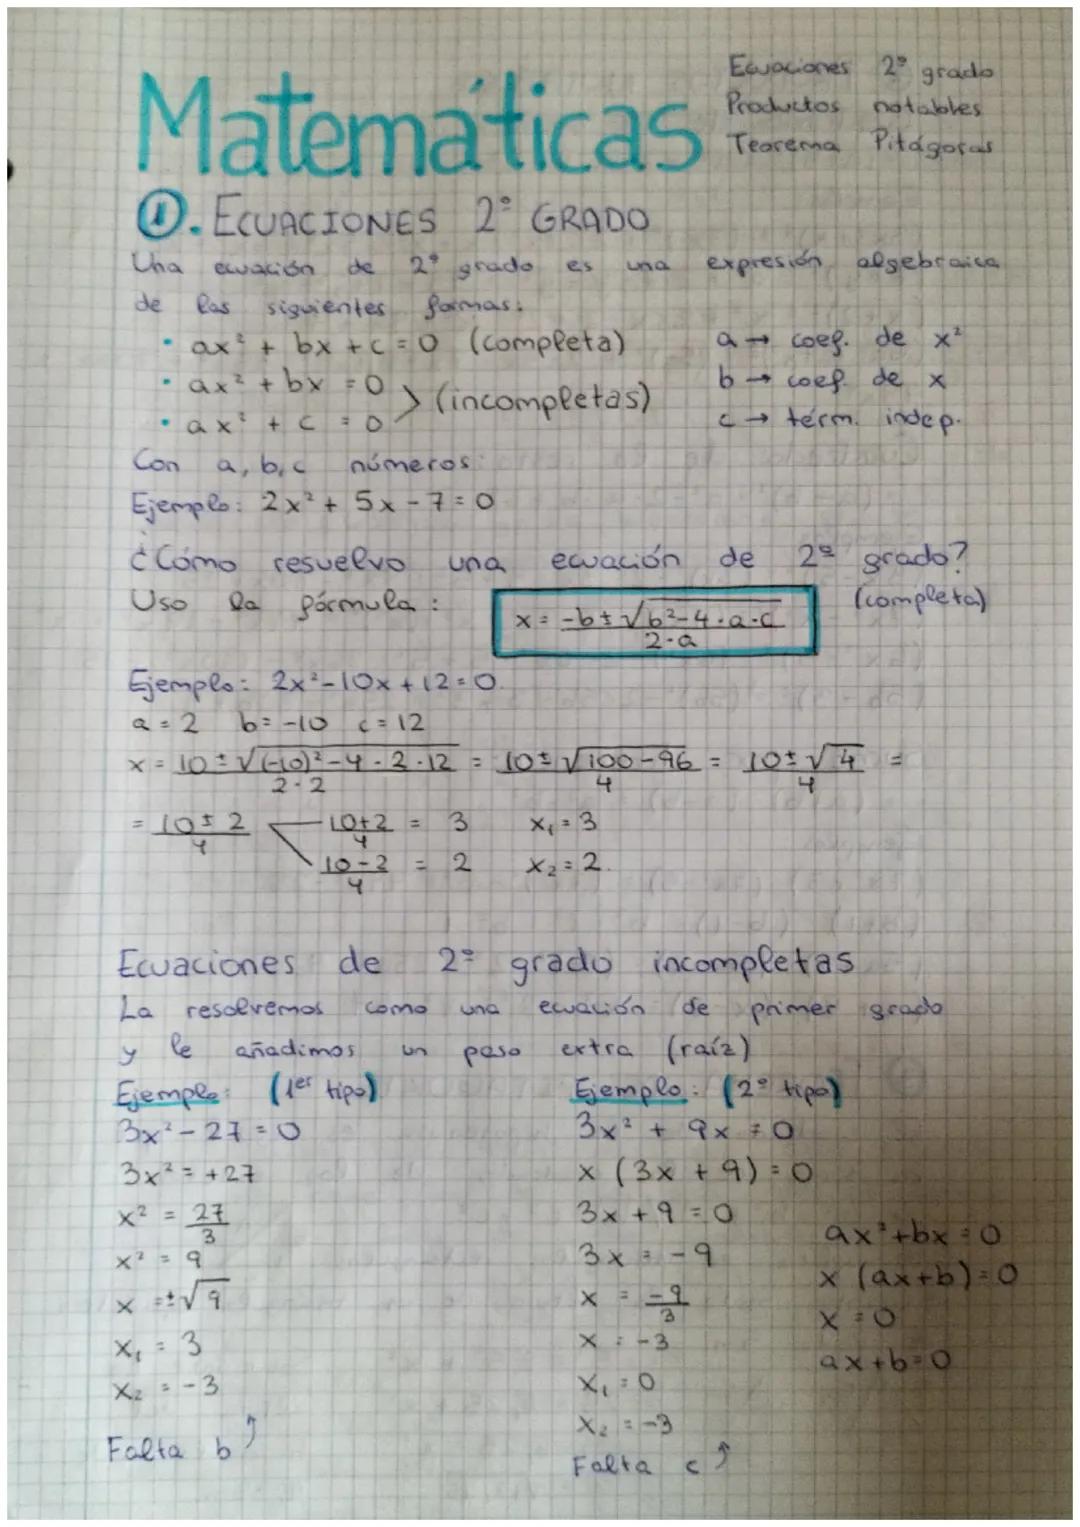 Matemáticas
Ecuaciones 2º grado
Productos notables
Teorema Pitágoras
①. ECUACIONES 2º GRADO
Una ecuación de 2º grado es una expresión algebraica
de las siguientes formas:
• ax² + bx + c = 0 (completa)
• ax² + bx = 0
• ax² + c = 0
> (incompletas)
a → coef. de x²
b → coef. de x
c → térm. indep.
Con a, b, c números.
Ejemplo: 2x² + 5x - 7 = 0
¿Cómo resuelvo una ecuación de 2º grado?
(completa)
Uso la fórmula: x = (-b ± √(b² - 4·a·c)) / (2·a)
Ejemplo: 2x² - 10x + 12 = 0.
a = 2 b = -10 c = 12
x = (10 ± √((-10)² - 4·2·12)) / (2·2) = (10 ± √(100 - 96)) / 4 = (10 ± √4) / 4 =
= (10 ± 2) / 4
(10+2) / 4 = 3 x₁ = 3
(10-2) / 4 = 2 x₂ = 2.
Ecuaciones de 2º grado incompletas
La resolvemos como una ecuación de primer grado
y le añadimos un paso extra (raíz)
Ejemplo: (1er tipo)
3x² - 27 = 0
3x² = +27
x² = 27/3
x² = 9
x = ±√9
x₁ = 3
x₂ = -3
Falta b
Ejemplo: (2º tipo)
3x² + 9x = 0
x (3x + 9) = 0
3x + 9 = 0
3x = -9
x = -9/3
x = -3
x₁ = 0
x₂ = -3
Falta c
ax² + bx = 0
x (ax+b) = 0
x = 0
ax+b = 0